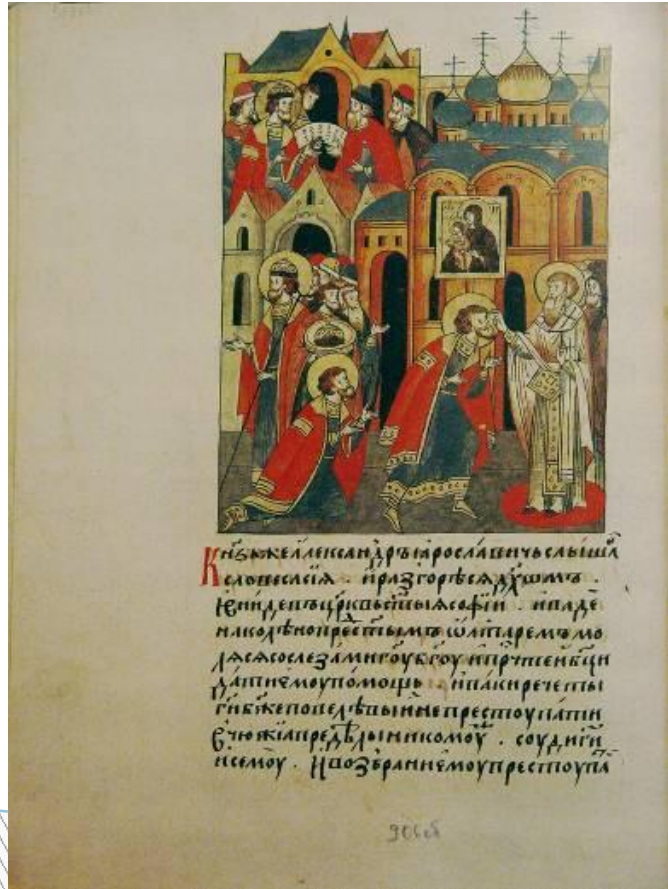 Кнѧзьжеалеѯандръꙗрославичьслышавъ
словесасїѧ . ѝразгорѣсѧдꙋшамъ .
ѝвнидевъцр҃квьст҃ыѧсофїи . ипаде
наколѣнопрест҃ымъѡлтаремъмо
лѧсѧсослезамигоу҆бг҃оуипрⷱ҇тенбц҃и
датиемоупомощь . ѝпакиречеты
гиб҃жеповелѣвыйнепрестоупати
вчюжїапредѣлыникомоу . соудиги
ѝсемоу . ѝвозбраниемоупрестоупа